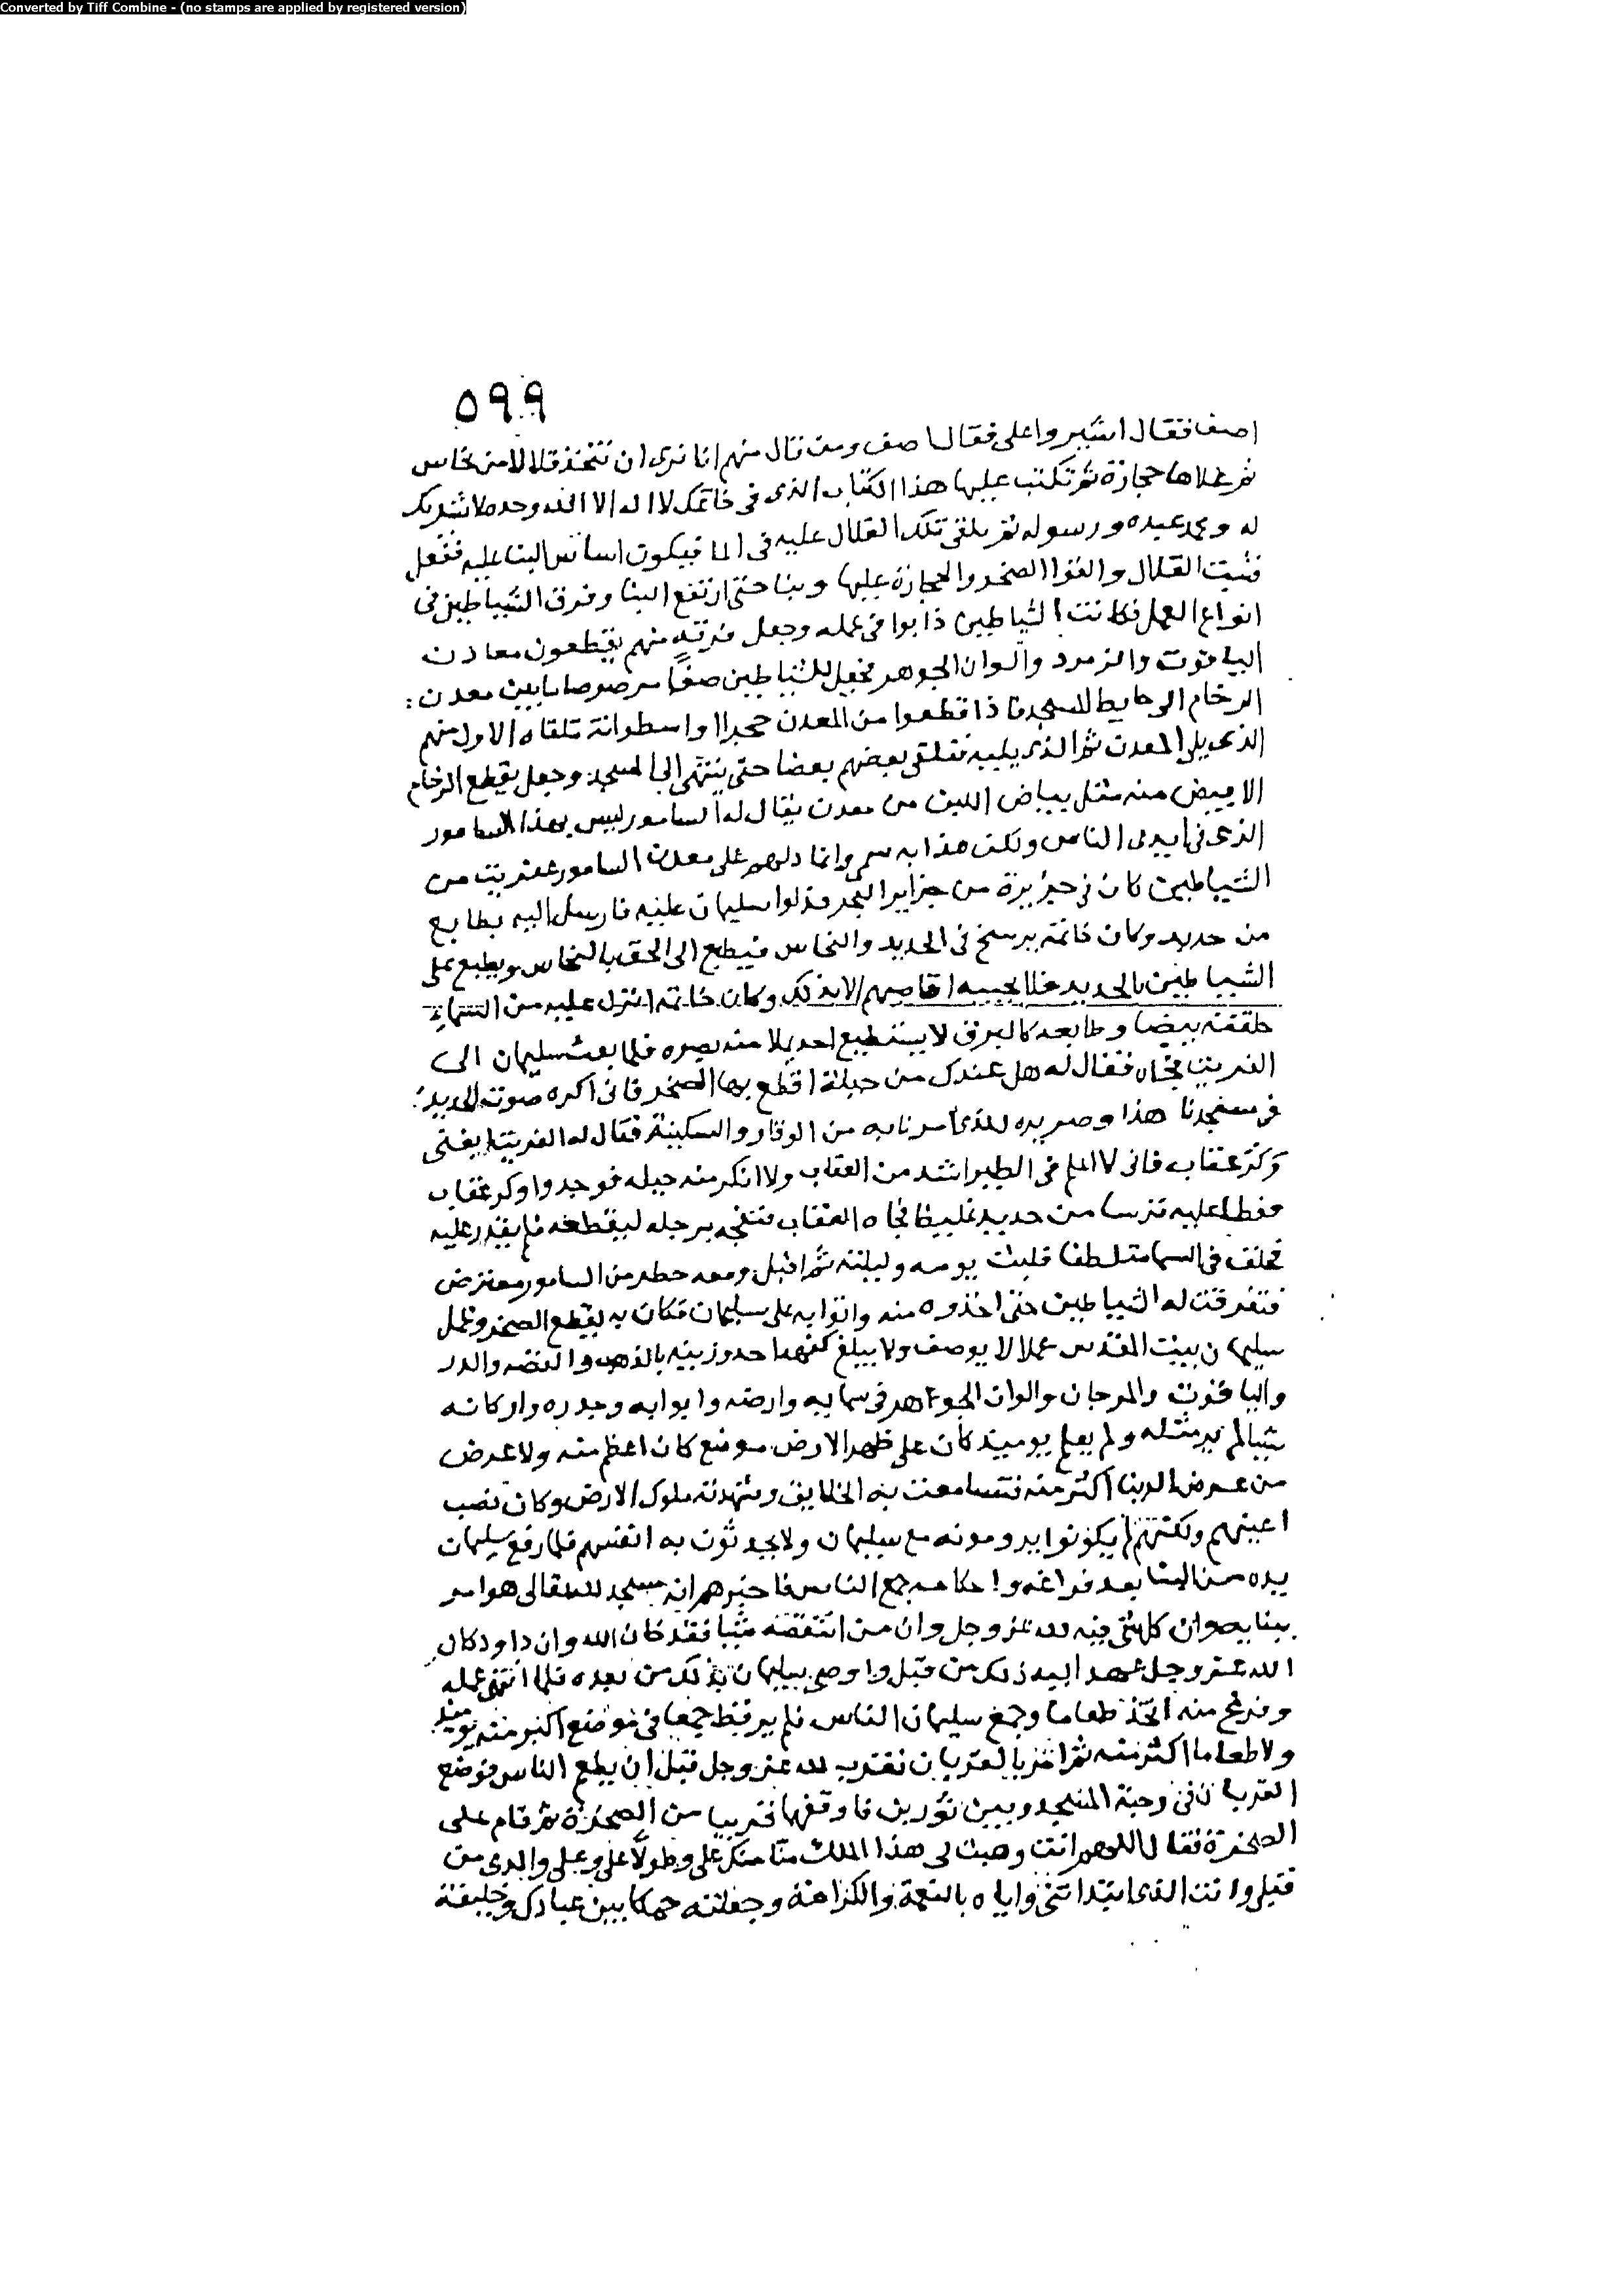 Converted by Tiff Combine - (no stamps are applied by registered version)
٥٩٩
اصف فقال اشيروا على فقال اصف ومن قال منهم انا نرى ان نتخذ قلالا من نحاس
ثم نملاها حجارة ثم تكتب عليها هذا الكتاب الذى فى خاتمك لا اله الا الله وحده لا شريك
له ومحمد عبده ورسوله ثم يلقى تلك القلال عليه فى الما فيكون اساس البنا عليه ففعل
فثبت القلال والقوا الصخر والحجارة عليها وبنا حتى ارتفع البنا وفرق الشياطين فى
انواع العمل فكانت الشياطين ذابوا فى عمله وجعل فرقة منهم يقطعون معادن
الياقوت والزمرد والوان الجوهر فجعل للشياطين صفا مرصوصا ما بين معدن
الرخام الى حايط المسجد فاذا قطعوا من المعدن حجرا او اسطوانة تلقاه الاول منهم
الذى يلى المعدن ثم الذى يليه فتلقى بعضهم بعضا حتى ينتهى الى المسجد وجعل يقطع الرخام
الابيض منه مثل بياض اللبن من معدن يقال له السامور ليس بهذا السامور
الذى فى ايدى الناس ولكن هذا به سمى وانما دلهم على معدن السامور عفريت من
الشياطين كان فى جزيرة من جزاير البحر فدلوا سليمان عليه فارسل اليه بطابع
من حديد وكان خاتمه يرسخ فى الحديد والنحاس فيطبع الى الجن بالنحاس ويطبع على
الشياطين بالحديد فلا يجيبه اقاصيهم الا بذلك وكان خاتمه انزل عليه من السماء
حلقته بيضا وطابعه كالبرق لا يستطيع احد يملا منه بصره فلما بعث سليمان الى
العفريت فجاه فقال له هل عندك من حيلة اقطع بها الصخر فانى اكره صوت الحديد
فى مسجدنا هذا وصريره للذى امرنا به من الوقار والسكينة فقال له العفريت ابغنى
وكر عقاب فانى لا اعلم فى الطير اشد من العقاب ولا انكر منه حيله فوجدوا وكر عقاب
فغطا عليه ترسا من حديد غليظا فجاه العقاب فنفحه برجله ليقطعه فلم يقدر عليه
فحلق فى السما متلطفا فلبث يومه وليلته ثم اقبل ومعه حطه من السامور معترض
فتفرقت له الشياطين حتى اخذوه منه واتوا به على سليمان فكان به يقطع الصخر وعمل
سليمان بيت المقدس عملا لا يوصف ولا يبلغ كنهه احد وزينه بالذهب والفضه والدر
والياقوت والمرجان والوان الجواهر فى سمايه وارضه وابوابه وجدره واركانه
شيا لم ير مثله ولم يعلم يوميذ كان على ظهر الارض موضع كان اعظم منه ولا عرض
من عرض الدنيا اكثر منه فتسامعت به الخلايق وشهدته ملوك الارض وكان نصب
اعينهم ولكنهم لم يكونوا يرومونه مع سليمان ولا يحدثون به انفسهم فلما رفع سليمان
يده من البنا بعد فراغه واحكامه جمع الناس فاخبرهم انه مسجد لله تعالى هو امر
ببنايه وان كل شى فيه لله عز وجل وان من انتقصه شيا فقد خان الله وان داود كان
الله عز وجل عهد اليه ذلك من قبل واوصى سليمان بذلك من بعده فلما انتهى عمله
وفرغ منه اتخذ طعاما وجمع سليمان الناس فلم ير قط جمعا فى موضع اكبر منه يوميذ
ولا طعاما اكثر منه ثم امر بالقربان فقرب لله عز وجل قبل ان يطعم الناس فوضع
القربان فى رحبة المسجد وبين ثورين فاوقفها قريبا من الصخرة ثم قام على
الصخرة فقال اللهم انت وهبت لى هذا الملك منا منك على وطولا على وعلى والدى من
قبلى وانت الذى ابتداتنى واياه بالنعمة والكرامة وجعلته حكما بين عبادك وخليفة